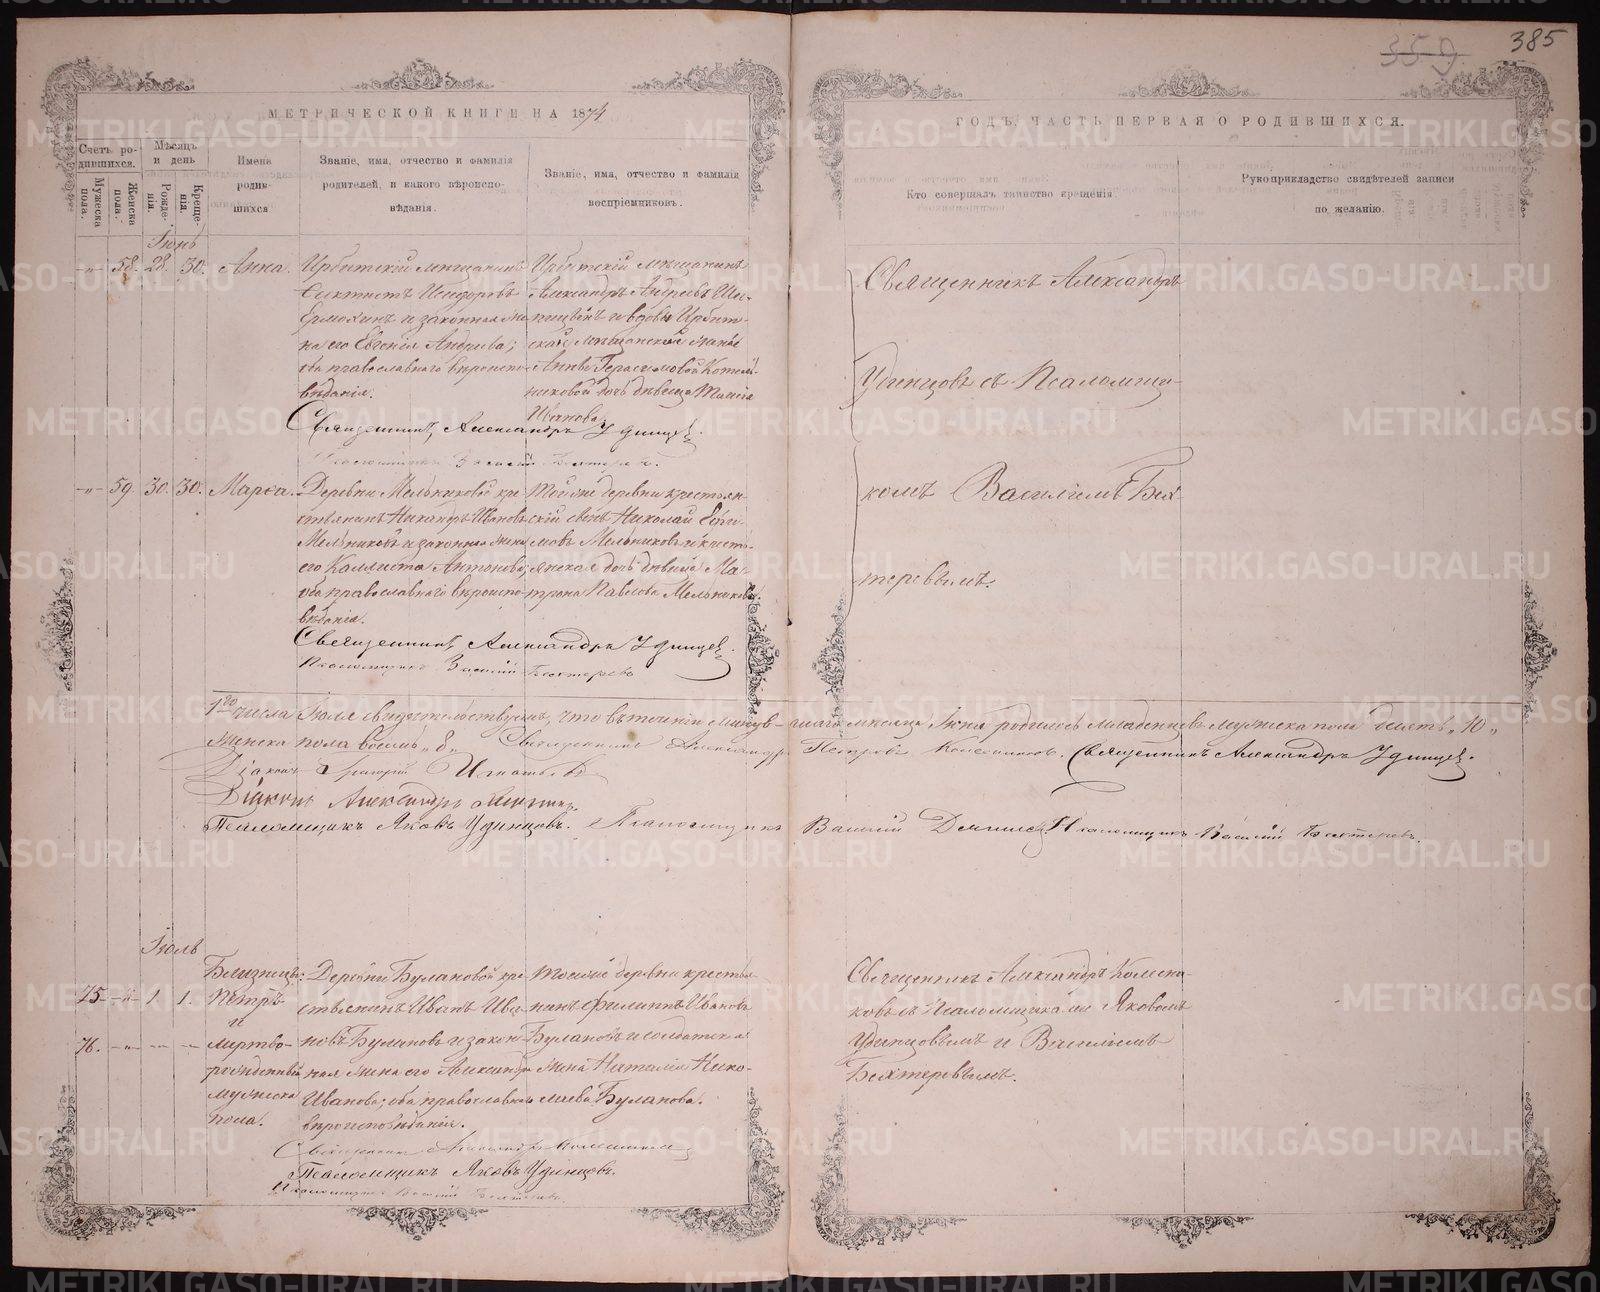 385
359
МЕТРИЧЕСКОЙ КНИГИ НА 1874
ГОДЪ, ЧАСТЬ ПЕРВАЯ О РОДИВШИХСЯ.
Счетъ ро-
дившихся.
Мужеска
пола.
Женска
пола.
Мѣсяцъ
и день
Рожде-
нія.
Креще-
нія.
Имена
родив-
шихся
Званіе, имя, отчество и фамилія
родителей, и какого вѣроиспо-
вѣданія.
Званіе, имя, отчество и фамилія
воспріемниковъ.
Кто совершалъ таинство крещенія
Рукоприкладство свидѣтелей записи
по желанію.
Іюнь
-"- 58. 28. 30. Анна.
Ирбитскій мѣщанинъ
Исидоровъ
Ермохинъ и законная же-
на его Евгенія Андреева;
оба православнаго вѣроиспо-
вѣданія.
Ирбитскій мѣщанинъ
Александръ Андреевъ
и вдова Ирбит-
ская мѣщанская
Анна Герасимова Котель-
никовой дочь дѣвица
Иванова
Священникъ Александръ Удинцевъ.
Псаломщикъ Василій Бехтеревъ.
Священникъ Александръ
Удинцовъ съ Псаломщи-
комъ Василіемъ Бех-
теревымъ.
-"- 59. 30. 30. Марѳа.
Деревни Мельниковой кре-
стьянинъ Никандръ Ивановъ
Мельниковъ и законная жена
его Каллиста Антонова;
оба православнаго вѣроиспо-
вѣданія.
Тойже деревни крестьян-
скій сынъ Николай
Мельниковъ и кресть-
янская дочь дѣвица Ма-
трона Павлова Мельникова.
Священникъ Александръ Удинцевъ.
Псаломщикъ Василій Бехтеревъ
1го числа Іюля свидѣтельствуемъ, что въ теченіи минув-шаго мѣсяца Іюня родилось младенцевъ мужеска пола десять "10"
женска пола восемь "8" Священникъ Александръ Петровъ Колесниковъ. Священникъ Александръ Удинцевъ.
Діаконъ Григорій Игнатьевъ
Діаконъ Александръ
Псаломщикъ Яковъ Удинцовъ. Псаломщикъ Василій Псаломщикъ Василій Бехтеревъ.
Іюль
75. -"- 1. 1.
76. -"- -"- -"-
Близнецы:
Петръ
и
мертво-
рожденный
мужеска
пола.
Деревни Булановой кре-
стьянинъ Иванъ Ива-
новъ Булановъ и закон-
ная жена его Александра
Иванова; оба православнаго
вѣроисповѣданія.
Тойже деревни крестья-
нинъ Филиппъ Ивановъ
Булановъ и солдатская
жена Наталія Нико-
лаева Буланова.
Священникъ Александръ Колесниковъ
Псаломщикъ Яковъ Удинцовъ.
Псаломщикъ Василій Бехтеревъ.
Священникъ Александръ Колесни-
ковъ съ Псаломщиками Яковомъ
Удинцовымъ и Василіемъ
Бехтеревымъ.
METRIKI.GASO-URAL.RU